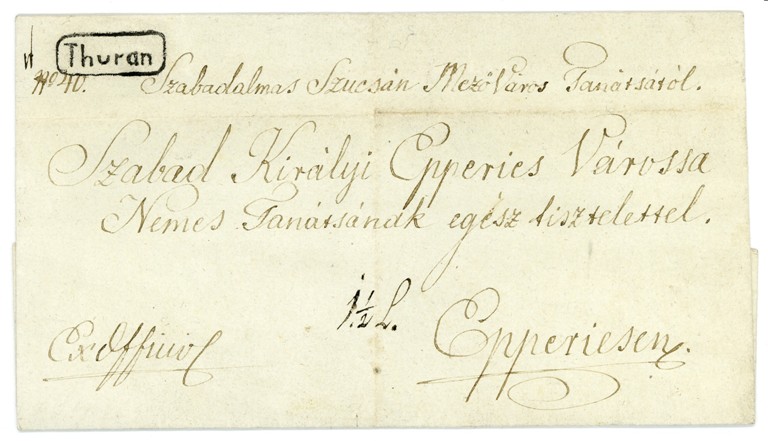 Thuran
No 40. Szabadalmas Szucsán Mező Város Tanátsától.
Szabad Királyi Epperies Várossa
Nemes Tanátsának egész tisztelettel.
1½ L.
Ex Officio
Epperiesen.